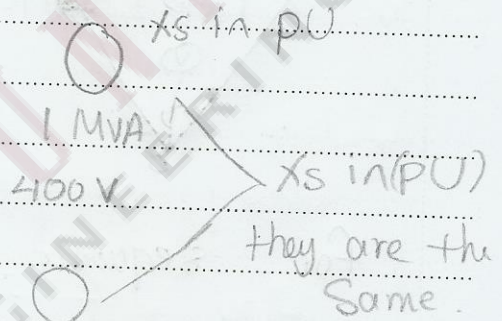 Xs in pU
1 MVA
400 V
Xs in(PU)
they are the
Same.